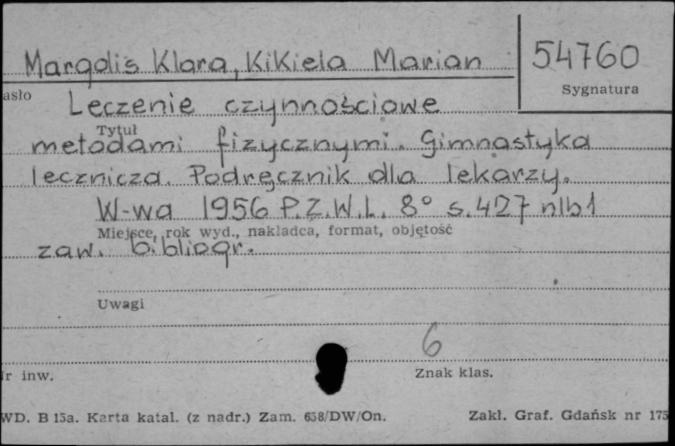 Margolis Klara, Kikiela Marian
54760
Sygnatura
asło
Leczenie czynnościowe
Tytuł
metodami fizycznymi. Gimnastyka
lecznicza. Podręcznik dla lekarzy.
W-wa 1956 P.Z.W.L. 8° s. 427 nlb 1
Miejsce, rok wyd., nakładca, format, objętość
zaw. bibliogr.
Uwagi
6
r inw.
Znak klas.
WD. B 15a. Karta katal. (z nadr.) Zam. 658/DW/On.
Zakł. Graf. Gdańsk nr 175